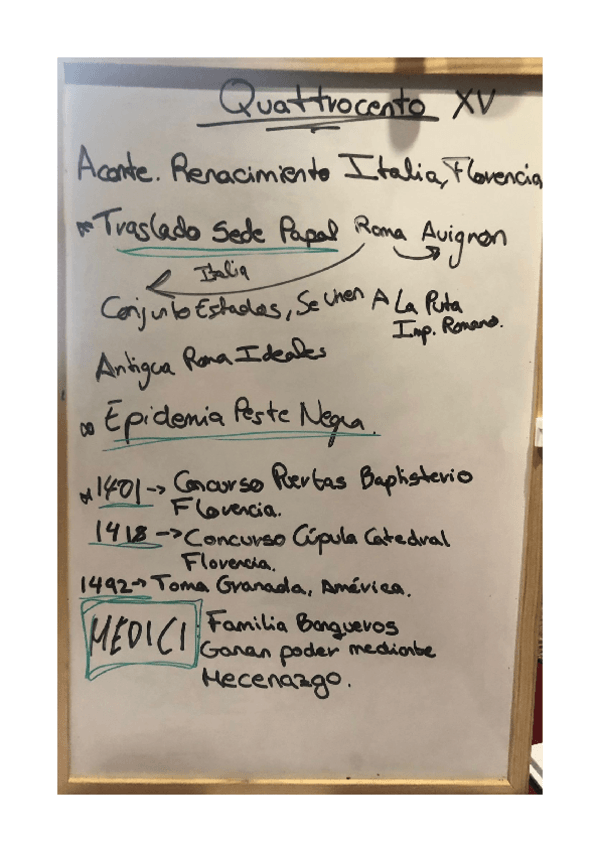 Quattrocento XV
Aconte. Renacimiento Italia, Florencia
Traslado Sede Papal Roma Avignon
Italia
Conjunto Estados, Se Unen A La Puta
Imp. Romano.
Antigua Roma Ideales
Epidemia Peste Negra.
1401 -> Concurso Puertas Baptisterio
Florencia.
1418 -> Concurso Cúpula Catedral
Florencia.
1492 -> Toma Granada, América.
MEDICI Familia Banqueros
Ganan poder mediante
Mecenazgo.